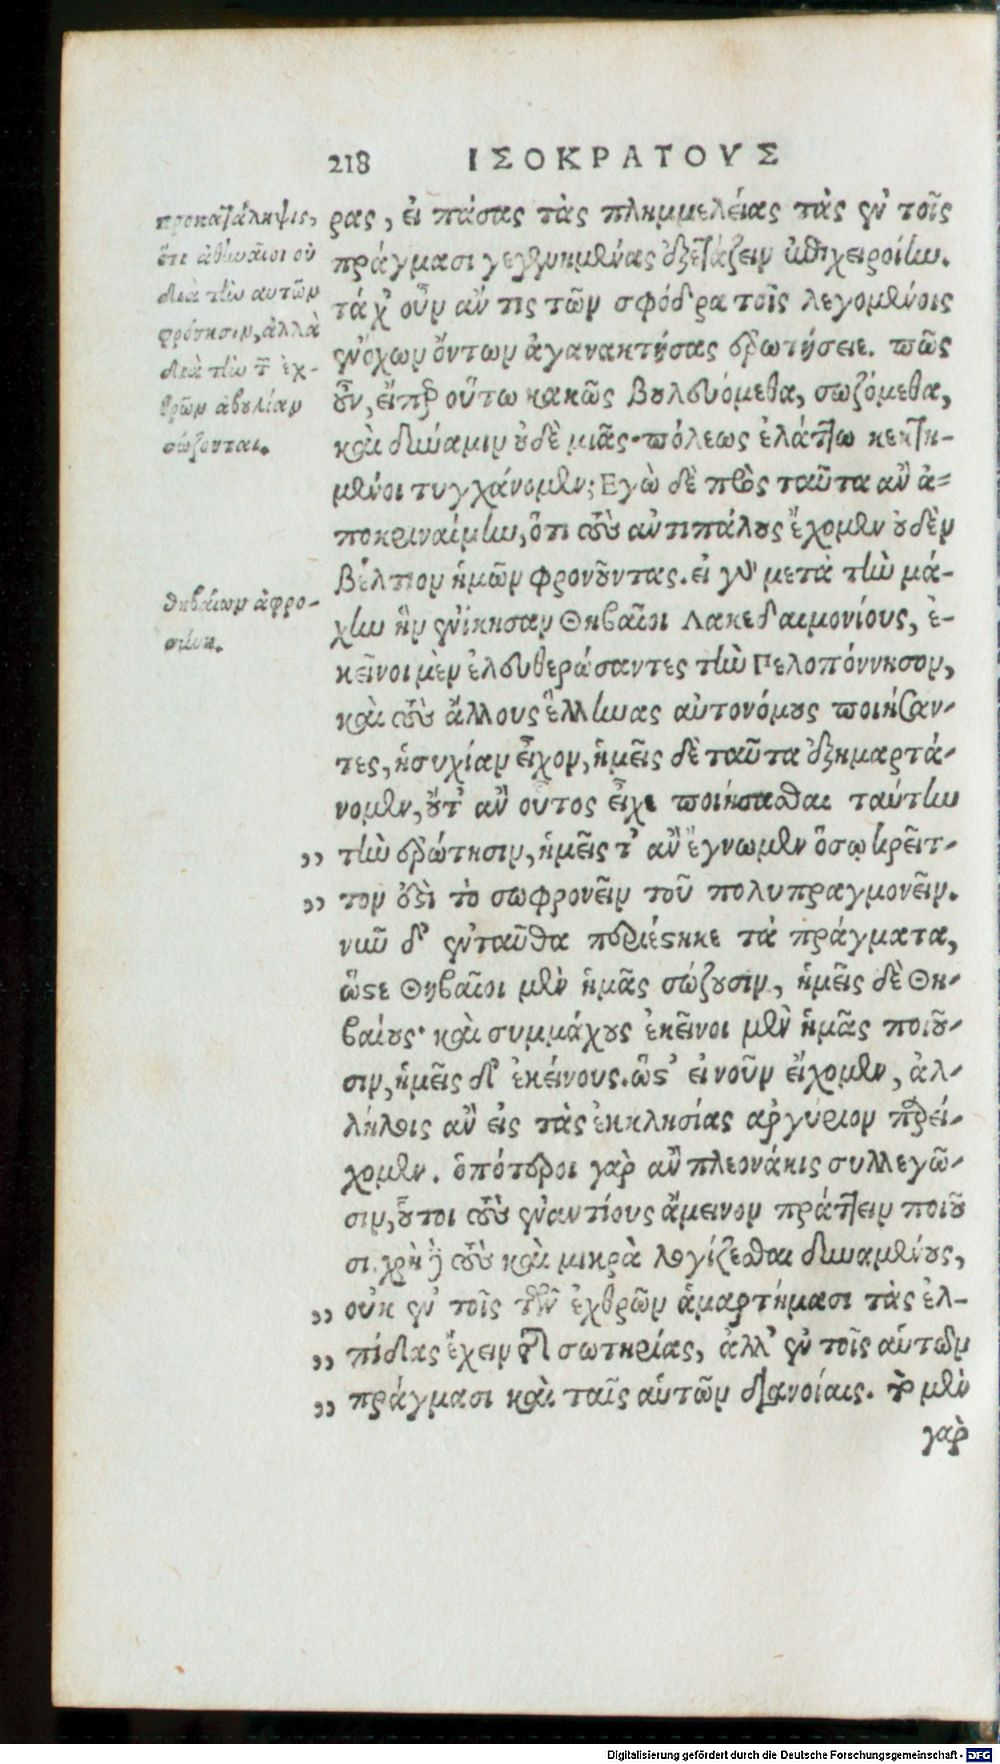 218 ΙΣΟΚΡΑΤΟΥΣ
προκατάληψις,
ὅτι ἀθηναῖοι οὐ
διὰ τὴν αυτῶν
φρόνησιν, ἀλλὰ
διὰ τὴν τῶν ἐχ-
θρῶν ἀβυλίαν
σώζονται.
ρας, εἰ πάσας τὰς πλημμελείας τὰς ἐν τοῖς
πράγμασι γεγενημένας ἐξετάζειν ἐπιχειροίην.
τάχ' οὖν ἄν τις τῶν σφόδρα τοῖς λεγομένοις
ἐνόχων ὄντων ἀγανακτήσας ἐρωτήσειε. πῶς
οὖν, εἴπερ οὕτω κακῶς βουλευόμεθα, σωζόμεθα,
καὶ δύναμιν οὐδὲ μιᾶς πόλεως ἐλάττω κεκτη-
μένοι τυγχάνομεν; Εγὼ δὲ πρὸς ταῦτα ἂν ἀ-
ποκριναίμην, ὅτι τοὺς ἀντιπάλους ἔχομεν οὐδὲν
βέλτιον ἡμῶν φρονοῦντας. εἰ γὰρ μετὰ τὴν μά-
θηβαίων ἀφρο-
σύνη.
χην ἣν ἐνίκησαν Θηβαῖοι Λακεδαιμονίους, ἐ-
κεῖνοι μὲν ἐλευθερώσαντες τὴν Πελοπόννησον,
καὶ τοὺς ἄλλους ἕλληνας αὐτονόμους ποιήσαν-
τες, ἡσυχίαν εἶχον, ἡμεῖς δὲ ταῦτα ἐξημαρτά-
νομεν, οὔτ' ἂν οὗτος εἶχε ποιήσασθαι ταύτην
,, τὴν ἐρώτησιν, ἡμεῖς τ' ἂν ἔγνωμεν ὅσῳ κρεῖτ-
,, τον ἐστὶ τὸ σωφρονεῖν τοῦ πολυπραγμονεῖν.
νῦν δ' ἐνταῦθα περιέστηκε τὰ πράγματα,
ὥστε Θηβαῖοι μὲν ἡμᾶς σώζουσιν, ἡμεῖς δὲ Θη-
βαίους· καὶ συμμάχους ἐκεῖνοι μὲν ἡμᾶς ποιοῦ-
σιν, ἡμεῖς δ' ἐκείνους. ὥστ' εἰ νοῦν εἴχομεν, ἀλ-
λήλοις ἂν εἰς τὰς ἐκκλησίας αργύριον παρεί-
χομεν. ὁπότεροι γὰρ ἂν πλεονάκις συλλεγῶ-
σιν, οὗτοι τοὺς ἐναντίους ἄμεινον πράττειν ποιοῦ
σι. χρὴ δὲ τοὺς καὶ μικρὰ λογίζεσθαι δυναμένους,
,, οὐκ ἐν τοῖς τῶν ἐχθρῶν ἁμαρτήμασι τὰς ἐλ-
,, πίδας ἔχειν τῆς σωτηρίας, ἀλλ' ἐν τοῖς αὑτῶν
,, πράγμασι καὶ ταῖς αὑτῶν διανοίαις. τὸ μὲν
γὰρ
Digitalisierung gefördert durch die Deutsche Forschungsgemeinschaft - DFG